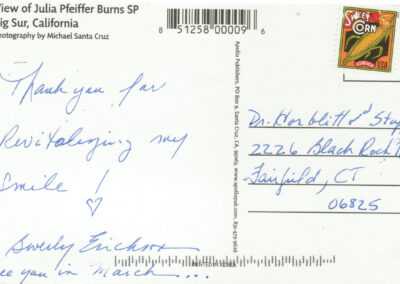 View of Julia Pfeiffer Burns SP
Big Sur, California
Photography by Michael Santa Cruz
8 51258 00009 6
Apollo Publishers, PO Box 9, Santa Cruz, CA, 95063 www.apollopub.com 831-479-9626
SWEET
CORN
USA
Thank you for
Revitalizing my
Smile!
Beverly Erickson
See you in March...
Dr. Horblitt and
2226 Black Rock
Fairfield, CT
06825
PRINTED IN KOREA